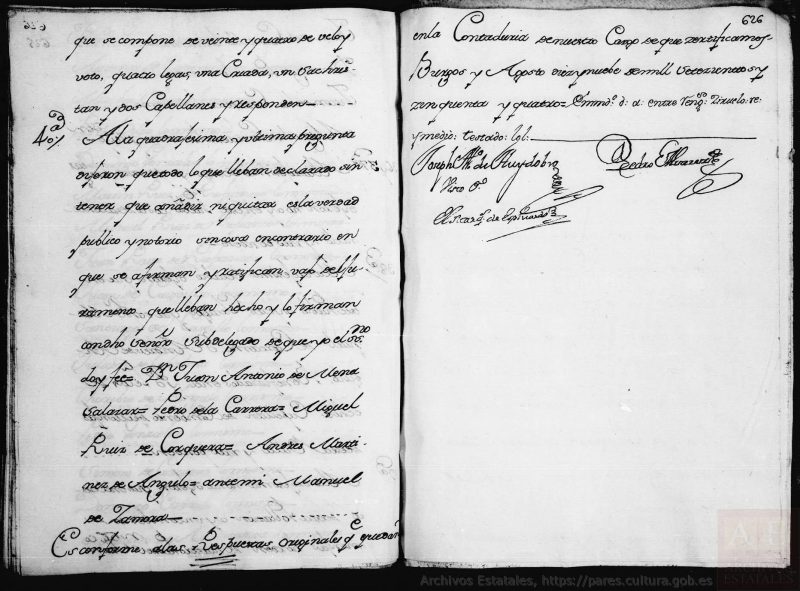 que se compone de veinte y quatro de vel o y
voto, quatro legas, una Criada, un Sachris
tan y dos Capellanes y responden
40ª
A la quadragesima, y ultima pregunta
dixeron que todo lo que lleban declarado sin
tener que añadir ni quitar es la verdad
publico y notorio sin cosa en contrario en
que se afirman y ratifican vajo del ju
ramento que lleban hecho y lo firman
con dho Señor Subdelegado de que yo el sno
doy fee= Dn Juan Antonio de Mena
Salazar= Pedro de la Carrera= Miguel
Ruiz de Corquera= Andres Marti
nez de Angulo= ante mi Manuel
de Zamora
Es conforme a las Respuestas Originales qe quedan
626
en la Contaduria de nuestro Cargo de que zertificamos
Burgos y Agosto diez y nuebe de mill setezientos y
zinquenta y quatro= Emmdo: d: a: entre
y medio: testado: lol:
Joseph Mª de Ruydobro
Pedro Alvarez
Visto Bº
Archivos Estatales, https://pares.cultura.gob.es